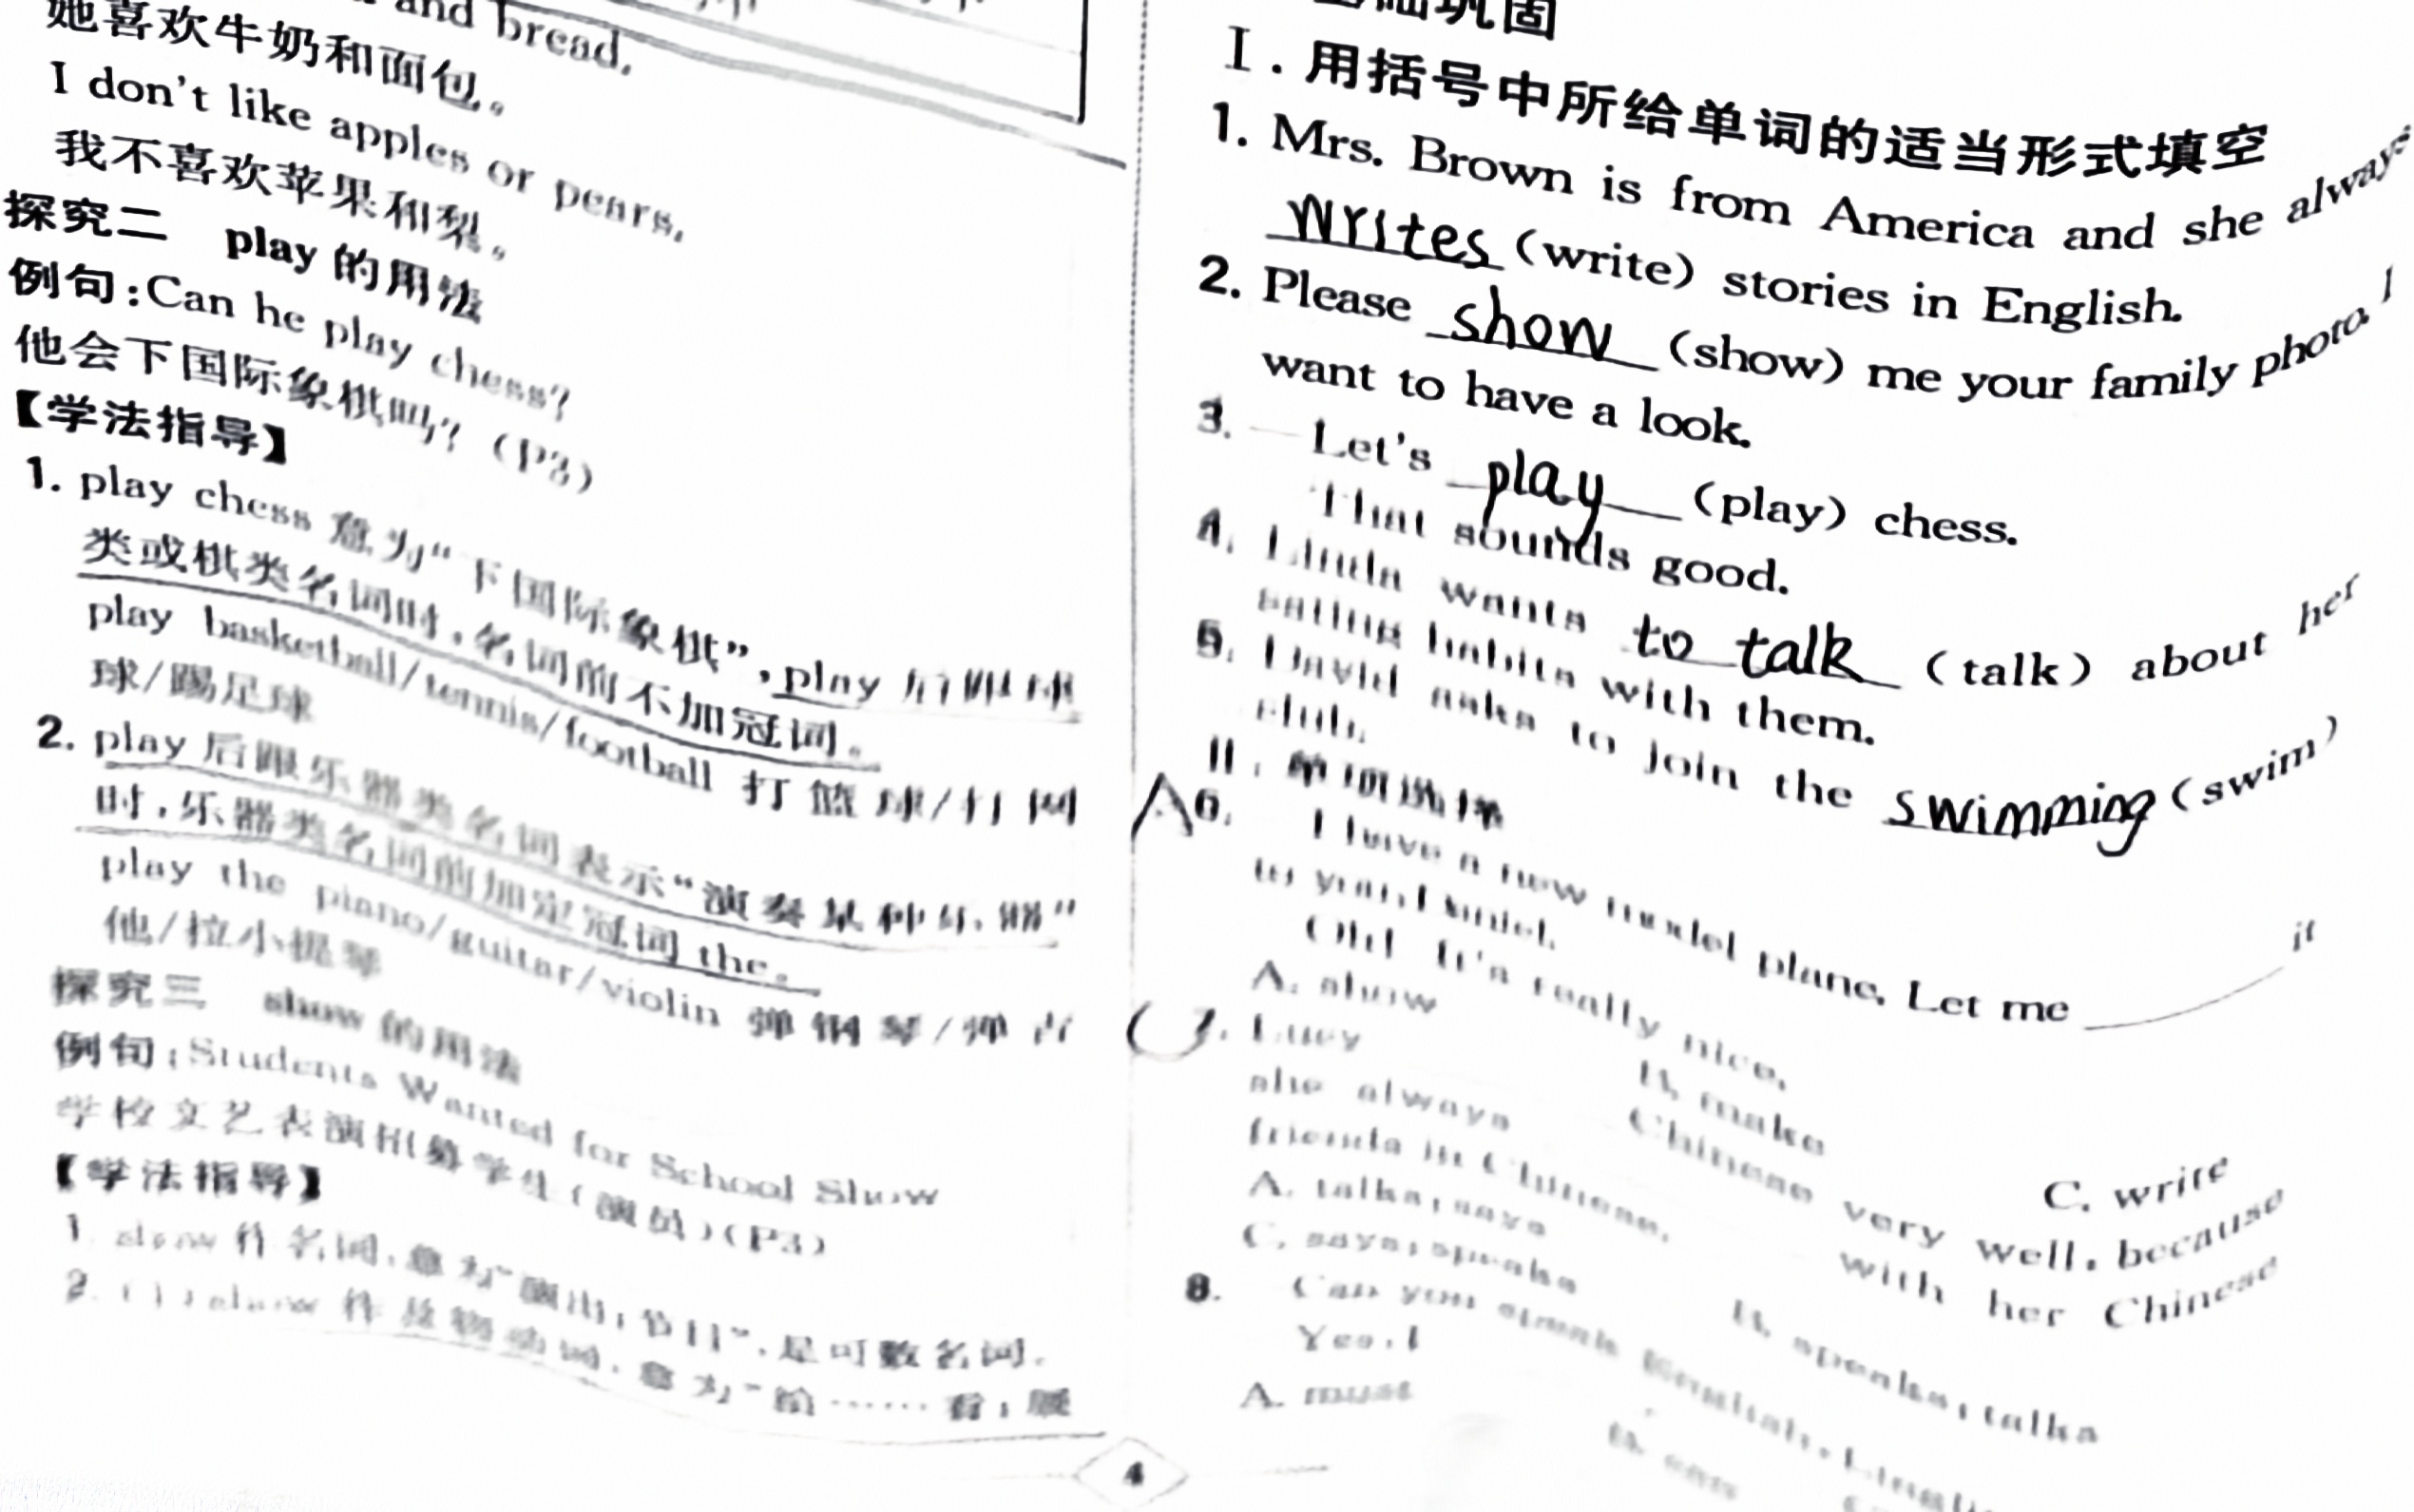 and bread.
她喜欢牛奶和面包。
I don't like apples or pears.
我不喜欢苹果和梨。
探究二 play 的用法
例句:Can he play chess?
他会下国际象棋吗?(P3)
【学法指导】
1. play chess 意为“下国际象棋”,play 后跟球
类或棋类名词时,名词前不加冠词。
play basketball/tennis/football 打篮球/打网
球/踢足球
2. play 后跟乐器类名词表示“演奏某种乐器”
时,乐器类名词前加定冠词 the。
play the piano/guitar/violin 弹钢琴/弹吉
他/拉小提琴
探究三 show 的用法
例句:Students Wanted for School Show
学校文艺表演招募学生(演员)(P3)
【学法指导】
1. show 作名词,意为“演出;节目”,是可数名词。
2. show 作及物动词,意为“给……看;展
4
基础巩固
I.用括号中所给单词的适当形式填空
1. Mrs. Brown is from America and she always
writes (write) stories in English.
2. Please show (show) me your family photo. I
want to have a look.
3. —Let's play (play) chess.
That sounds good.
4. Linda wants to talk (talk) about her
eating habits with them.
5. David asks to join the swimming (swim)
club.
II.单项选择
A 6. I have a new model plane. Let me ____ it
to you, Daniel.
Oh! It's really nice.
A. show B. make C. write
C 7. Lucy Chinese very well, because
she always with her Chinese
friends in Chinese.
A. talks; says B. speaks; talks
C. says; speaks
8. Can you speak English,
Yes, I
A. must B. can